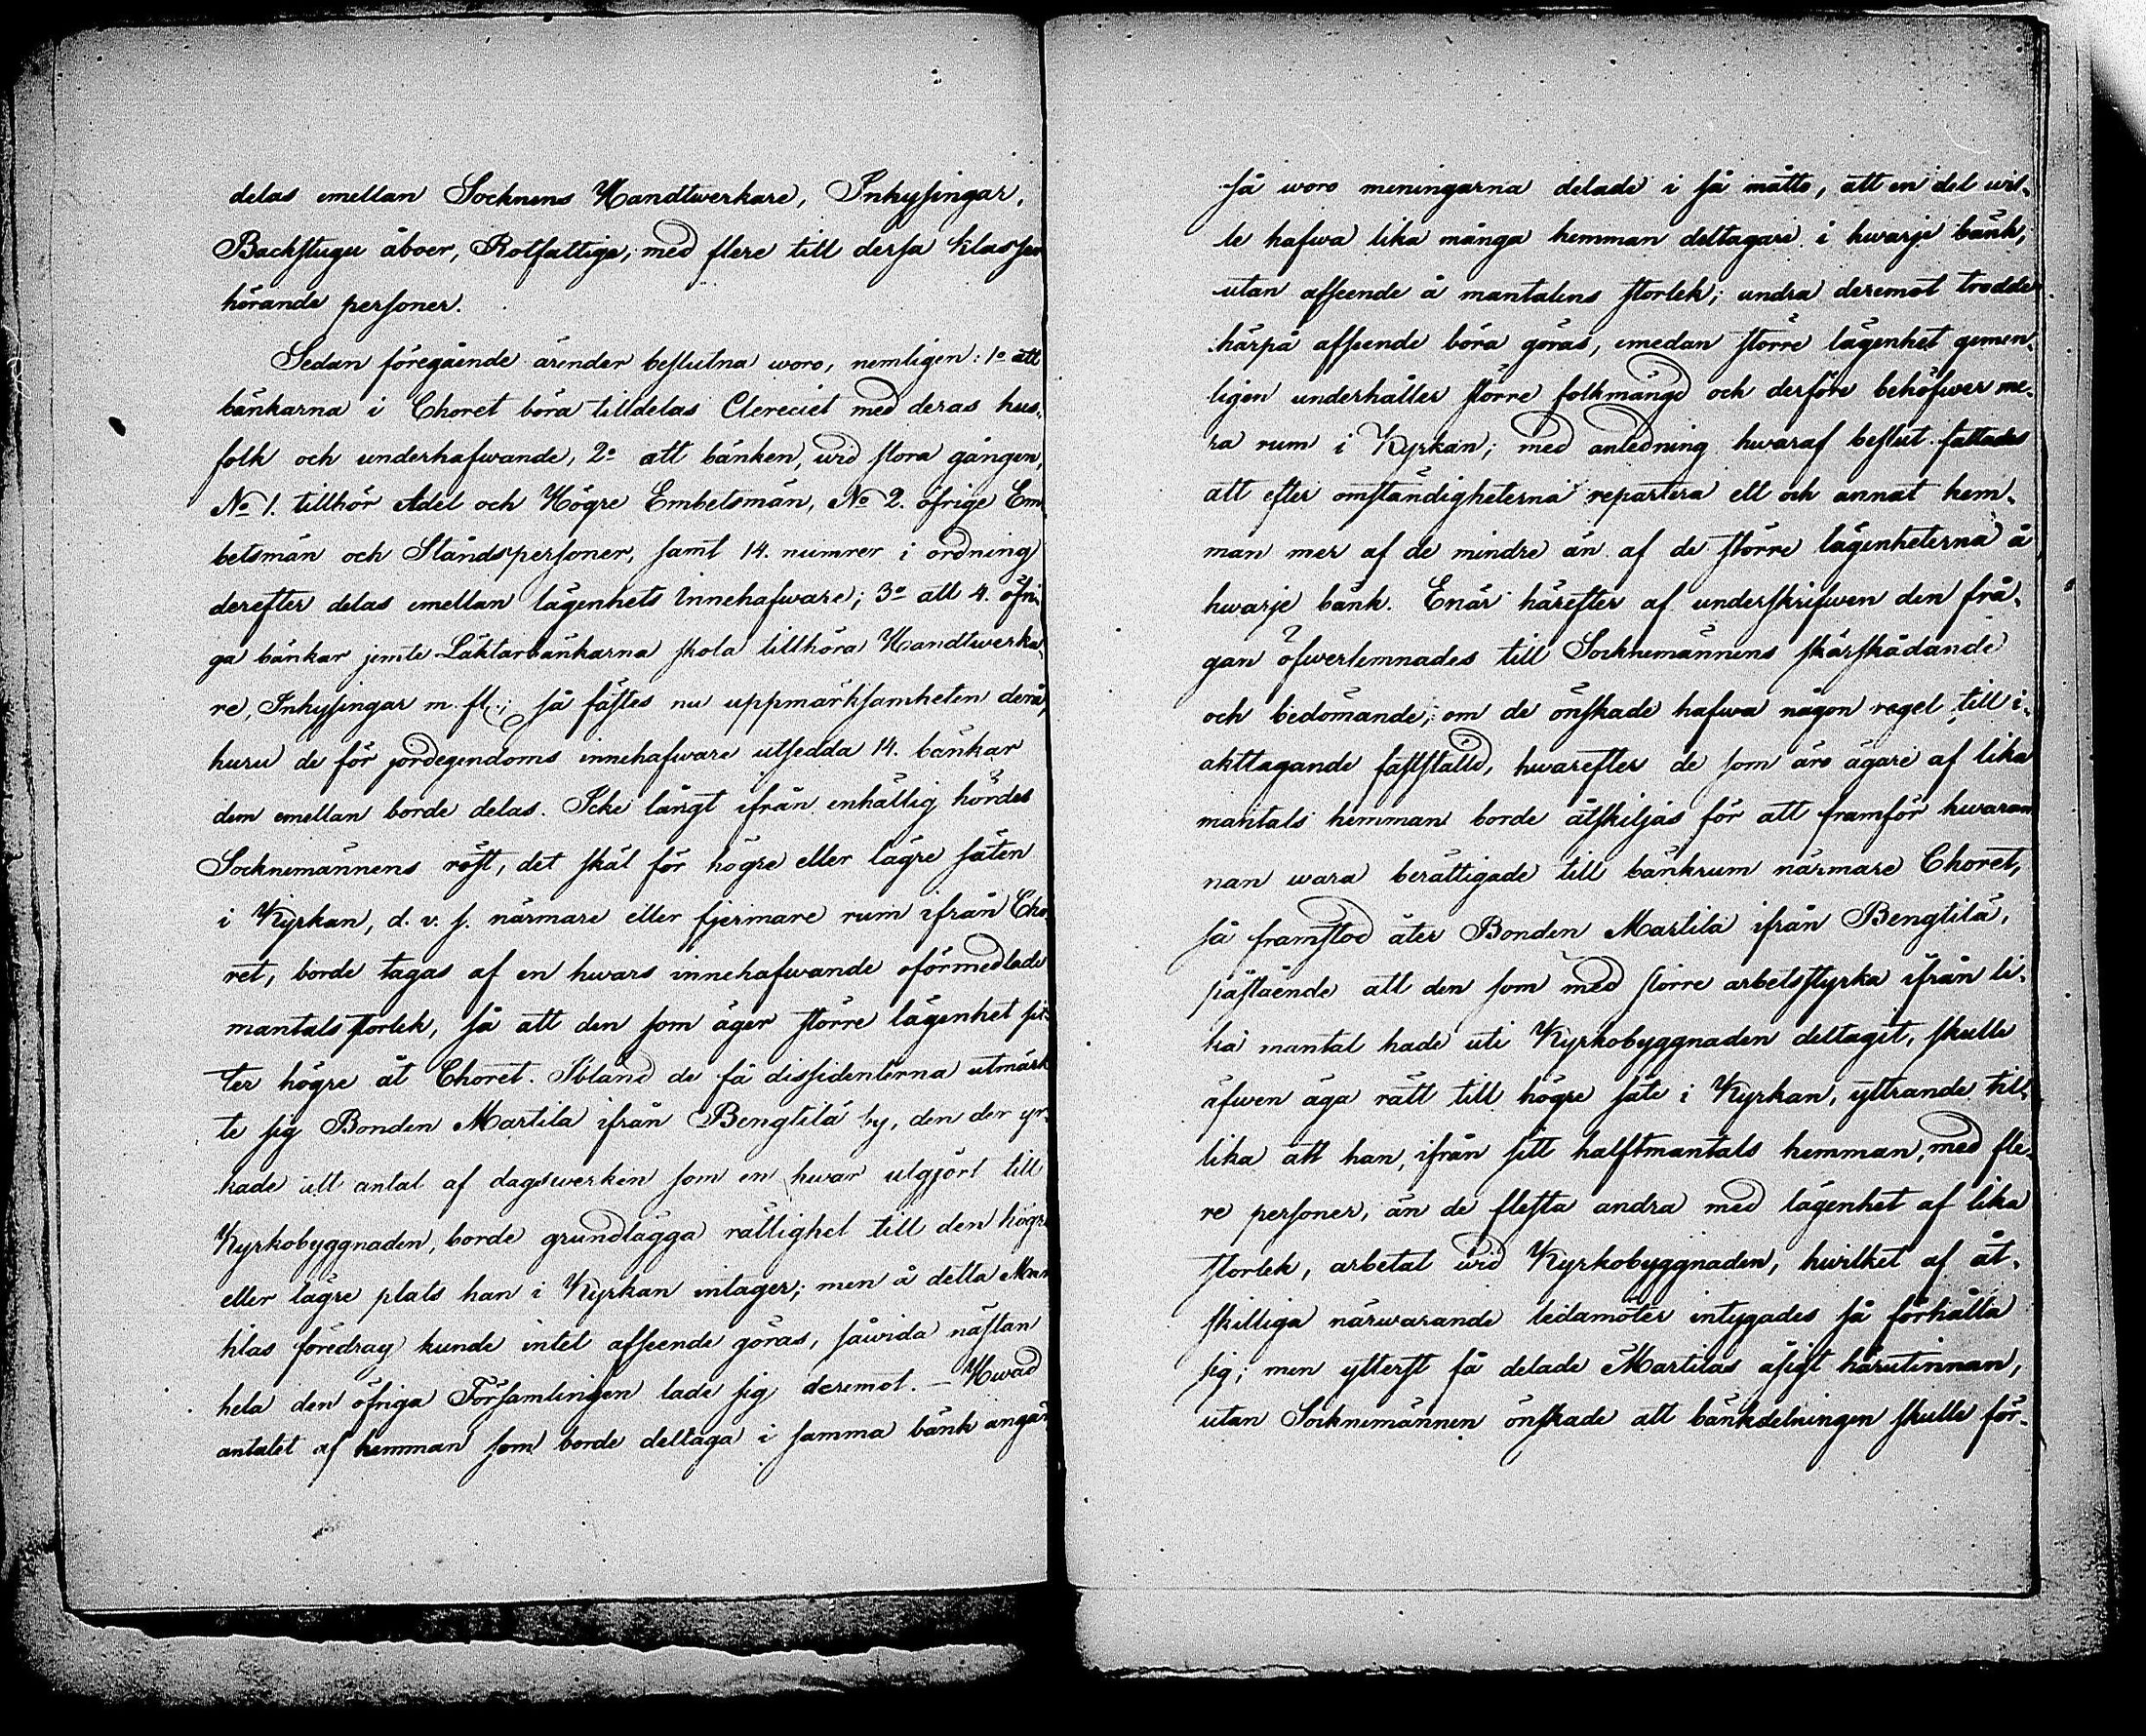 delas emellan Socknens Handtwerkare, Inhysingar,
Backstugu åboer, Rotfattige, med flere till dessa klasser
hörande personer.
Sedan föregående ärender beslutna woro, nemligen: 1º att
bänkarna i Choret böra tilldelas Clereciet med deras hus-
folk och underhafwande, 2º att bänken, wid stora gången,
No 1. tillhör Adel och Högre Embetsmän, No 2. öfrige Em-
betsmän och Ståndspersoner, samt 14. numrer i ordning
derefter delas emellan lägenhets Innehafware; 3º att 4. öfri-
ga bänkar jemte Läktarbänkarna skola tillhöra Handtwerka-
re, Inhysingar m. fl.; så fästes nu uppmärksamheten derå,
huru de för jordegendoms innehafware utsedda 14. bänkar
dem emellan borde delas. Icke långt ifrån enhällig hördes
Socknemännens röst, det skäl för högre eller lägre säten
i Kyrkan, d. v. s. närmare eller fjermare rum ifrån Cho-
ret, borde tagas af en hwars innehafwande oförmedlade
mantals storlek, så att den som äger större lägenhet sit-
ter högre åt Choret. Ibland de få dissidenterna utmärk-
te sig Bonden Martila ifrån Bengtilä by, den der yr-
kade att antal af dagswerken som en hwar utgjort till
Kyrkobyggnaden, borde grundlägga rättighet till den högre
eller lägre plats han i Kyrkan intager; men å detta Mar-
tilas föredrag kunde intet afseende göras, såwida nästan
hela den öfriga Församlingen lade sig deremot. – Hwad
antalet af hemman som borde deltaga i samma bänk angår
så woro meningarna delade i så måtto, att en del wil-
le hafwa lika många hemman deltagare i hwarje bänk,
utan afseende å mantalens storlek; andra deremot trodde
härpå afseende böra göras, emedan större lägenhet gemen-
ligen underhåller större folkmängd och derföre behöfwer me-
ra rum i Kyrkan; med anledning hwaraf beslut fattades
att efter omständigheterna repartera ett och annat hem-
man mer af de mindre än af de större lägenheterna å
hwarje bänk. Enär härefter af underskrifwen den frå-
gan öfwerlemnades till Socknemännens skärskådande
och bedömande, om de önskade hafwa någon regel till i-
akttagande fastställd, hwarefter de som äro ägare af lika
mantals hemman borde åtskiljas för att framför hwaran-
nan wara berättigade till bänkrum närmare Choret,
så framstod åter Bonden Martila ifrån Bengtilä,
påstående att den som med större arbetsstyrka ifrån li-
ka mantal hade uti Kyrkobyggnaden deltagit, skulle
äfwen äga rätt till högre säte i Kyrkan, yttrande till-
lika att han, ifrån sitt halftmantals hemman, med fle-
re personer, än de flesta andra med lägenhet af lika
storlek, arbetat wid Kyrkobyggnaden, hwilket af åt-
skilliga närwarande ledamöter intygades så förhålla
sig; men ytterst få delade Martilas åsigt härutinnan,
utan Socknemännen önskade att bänkdelningen skulle för-